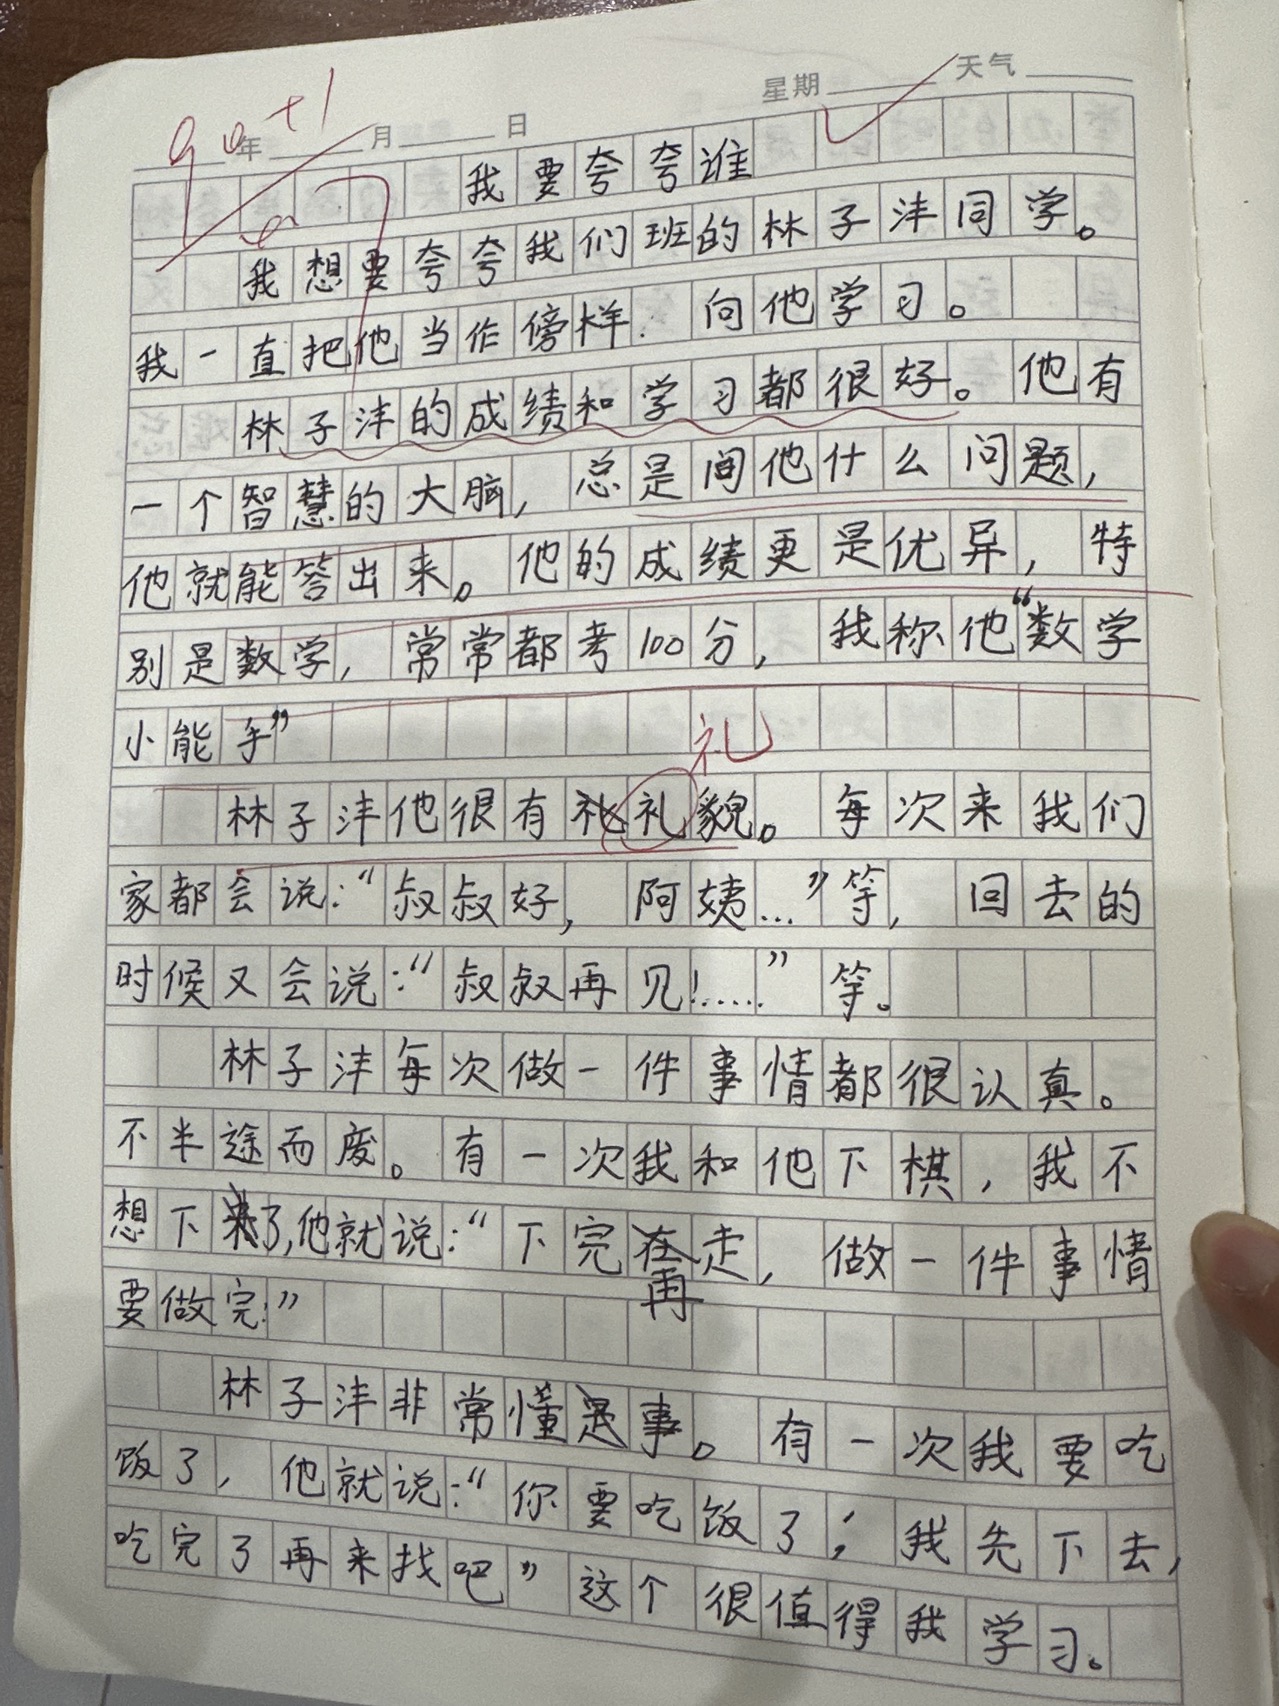 星期 天气
90+1
年 月 日
我要夸夸谁
我想要夸夸我们班的林子沣同学。
我一直把他当作傍样. 向他学习。
林子沣的成绩和学习都很好。他有
一个智慧的大脑, 总是间他什么问题,
他就能答出来。他的成绩更是优异, 特
别是数学, 常常都考100分, 我称他“数学
小能手”
礼
林子沣他很有礼貌。每次来我们
家都会说:“叔叔好, 阿姨…”等, 回去的
时候又会说:“叔叔再见!……”等。
林子沣每次做一件事情都很认真。
不半途而废。有一次我和他下棋, 我不
想下了,他就说:“下完再走, 做一件事情
要做完.”
林子沣非常懂事。有一次我要吃
饭了, 他就说:“你要吃饭了; 我先下去,
吃完了再来找吧”这个很值得我学习。